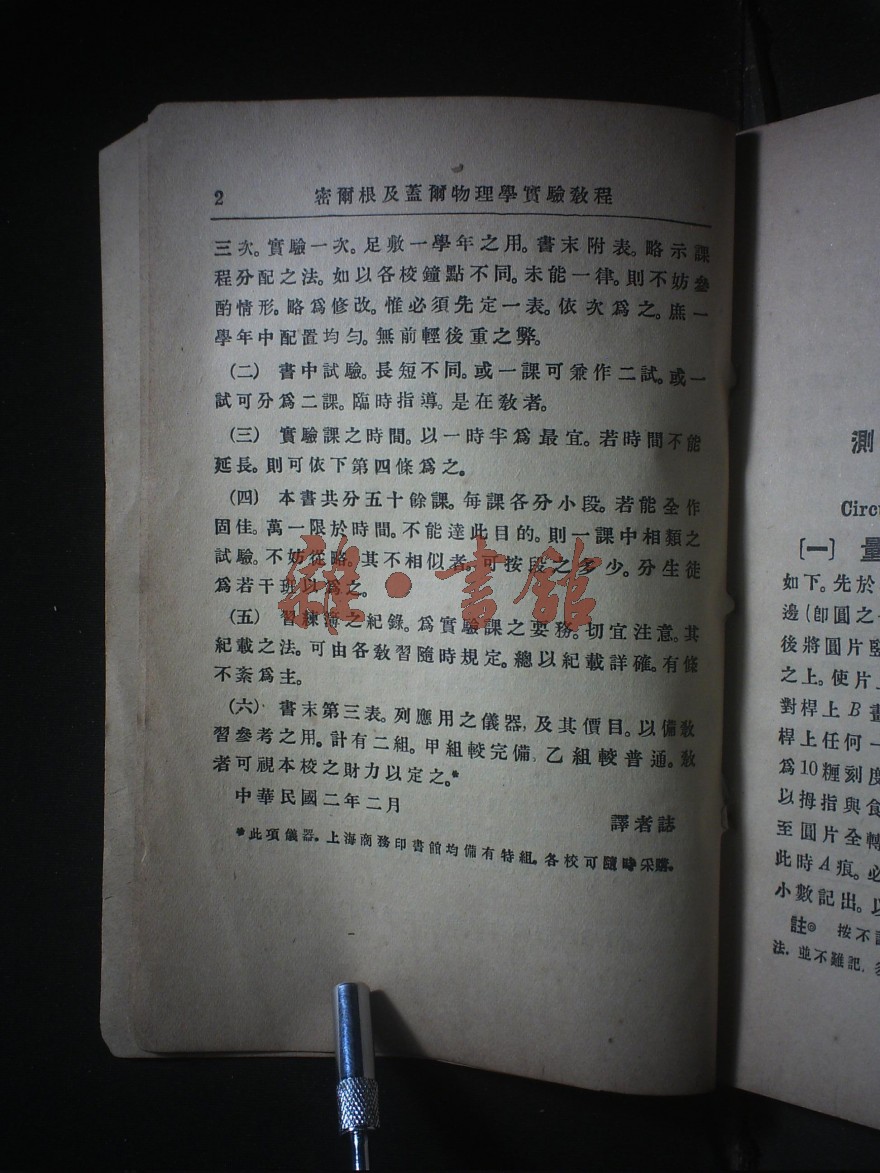 2 密爾根及蓋爾物理學實驗敎程
三次。實驗一次。足敷一學年之用。書末附表。略示課
程分配之法。如以各校鐘點不同。未能一律。則不妨參
酌情形。略爲修改。惟必須先定一表。依次爲之。庶一
學年中配置均勻。無前輕後重之弊。
(二) 書中試驗。長短不同。或一課可兼作二試。或一
試可分爲二課。臨時指導。是在敎者。
(三) 實驗課之時間。以一時半爲最宜。若時間不能
延長。則可依下第四條爲之。
(四) 本書共分五十餘課。每課各分小段。若能全作
固佳。萬一限於時間。不能達此目的。則一課中相類之
試驗。不妨從略。其不相似者。可按段之多少。分生徒
爲若干班以爲之。
(五) 習練簿之紀錄。爲實驗課之要務。切宜注意。其
紀載之法。可由各敎習隨時規定。總以紀載詳確。有條
不紊爲主。
(六) 書末第三表。列應用之儀器。及其價目。以備敎
習參考之用。計有二組。甲組較完備。乙組較普通。敎
者可視本校之財力以定之。*
中華民國二年二月
譯者誌
*此項儀器。上海商務印書館均備有特組。各校可隨時采購。
雜·書館
測
Circu
〔一〕 量
如下。先於
邊(卽圓之
後將圓片豎
之上。使片
對桿上 B 畫
桿上任何一
爲10糎刻度
以拇指與食
至圓片全轉
此時A痕。必
小數記出。以
註◎ 按不
法。並不難記。